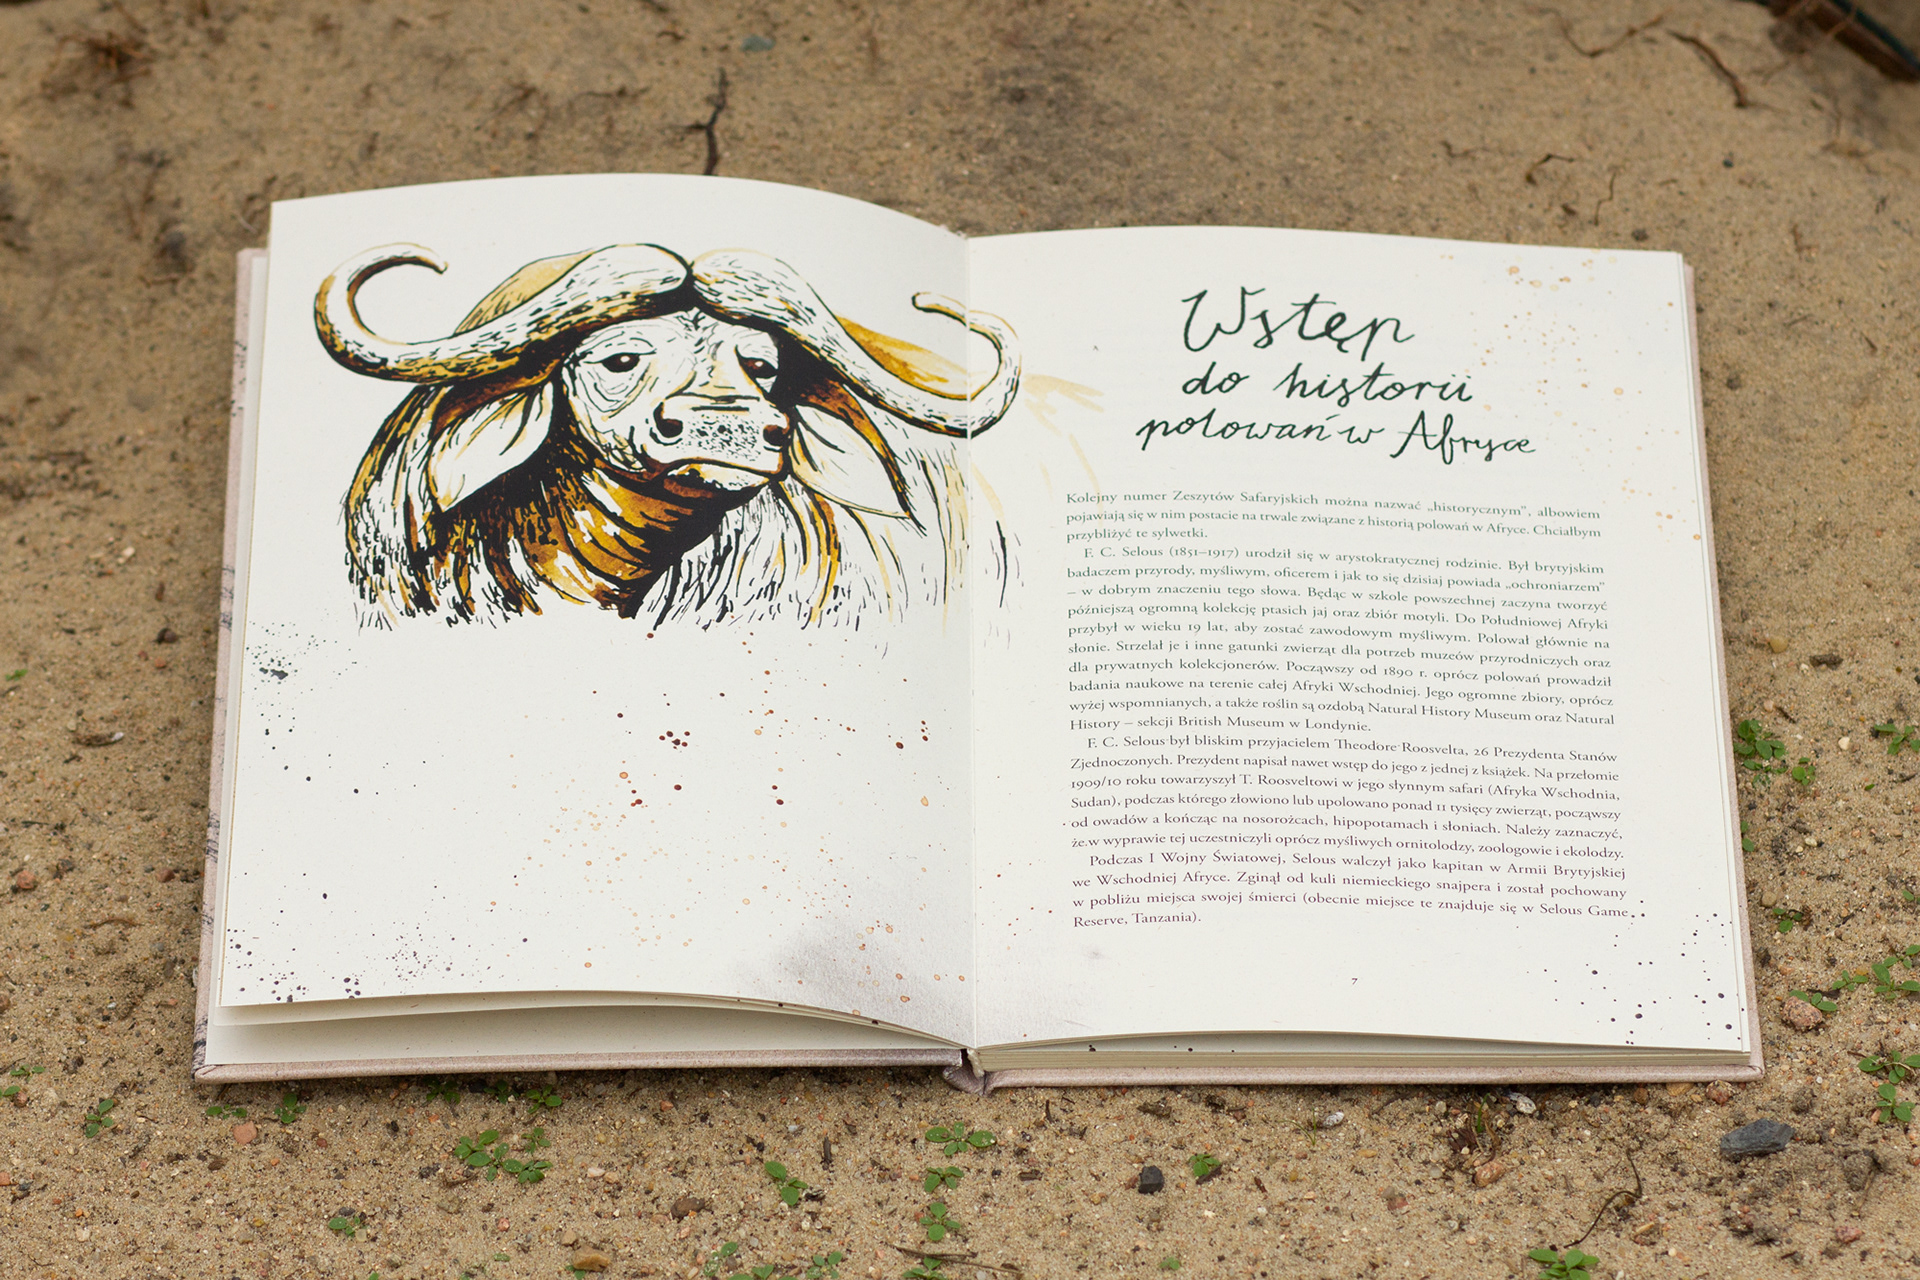 Wstęp
do historii
polowań w Afryce
Kolejny numer Zeszytów Safaryjskich można nazwać „historycznym”, albowiem
pojawiają się w nim postacie na trwałe związane z historią polowań w Afryce. Chciałbym
przybliżyć te sylwetki.
F. C. Selous (1851–1917) urodził się w arystokratycznej rodzinie. Był brytyjskim
badaczem przyrody, myśliwym, oficerem i jak to się dzisiaj powiada „ochroniarzem”
– w dobrym znaczeniu tego słowa. Będąc w szkole powszechnej zaczyna tworzyć
późniejszą ogromną kolekcję ptasich jaj oraz zbiór motyli. Do Południowej Afryki
przybył w wieku 19 lat, aby zostać zawodowym myśliwym. Polował głównie na
słonie. Strzelał je i inne gatunki zwierząt dla potrzeb muzeów przyrodniczych oraz
dla prywatnych kolekcjonerów. Począwszy od 1890 r. oprócz polowań prowadził
badania naukowe na terenie całej Afryki Wschodniej. Jego ogromne zbiory, oprócz
wyżej wspomnianych, a także roślin są ozdobą Natural History Museum oraz Natural
History – sekcji British Museum w Londynie.
F. C. Selous był bliskim przyjacielem Theodore Roosvelta, 26 Prezydenta Stanów
Zjednoczonych. Prezydent napisał nawet wstęp do jego z jednej z książek. Na przełomie
1909/10 roku towarzyszył T. Roosveltowi w jego słynnym safari (Afryka Wschodnia,
Sudan), podczas którego złowiono lub upolowano ponad 11 tysięcy zwierząt, począwszy
od owadów a kończąc na nosorożcach, hipopotamach i słoniach. Należy zaznaczyć,
że w wyprawie tej uczestniczyli oprócz myśliwych ornitolodzy, zoologowie i ekolodzy.
Podczas I Wojny Światowej, Selous walczył jako kapitan w Armii Brytyjskiej
we Wschodniej Afryce. Zginął od kuli niemieckiego snajpera i został pochowany
w pobliżu miejsca swojej śmierci (obecnie miejsce te znajduje się w Selous Game
Reserve, Tanzania).
7